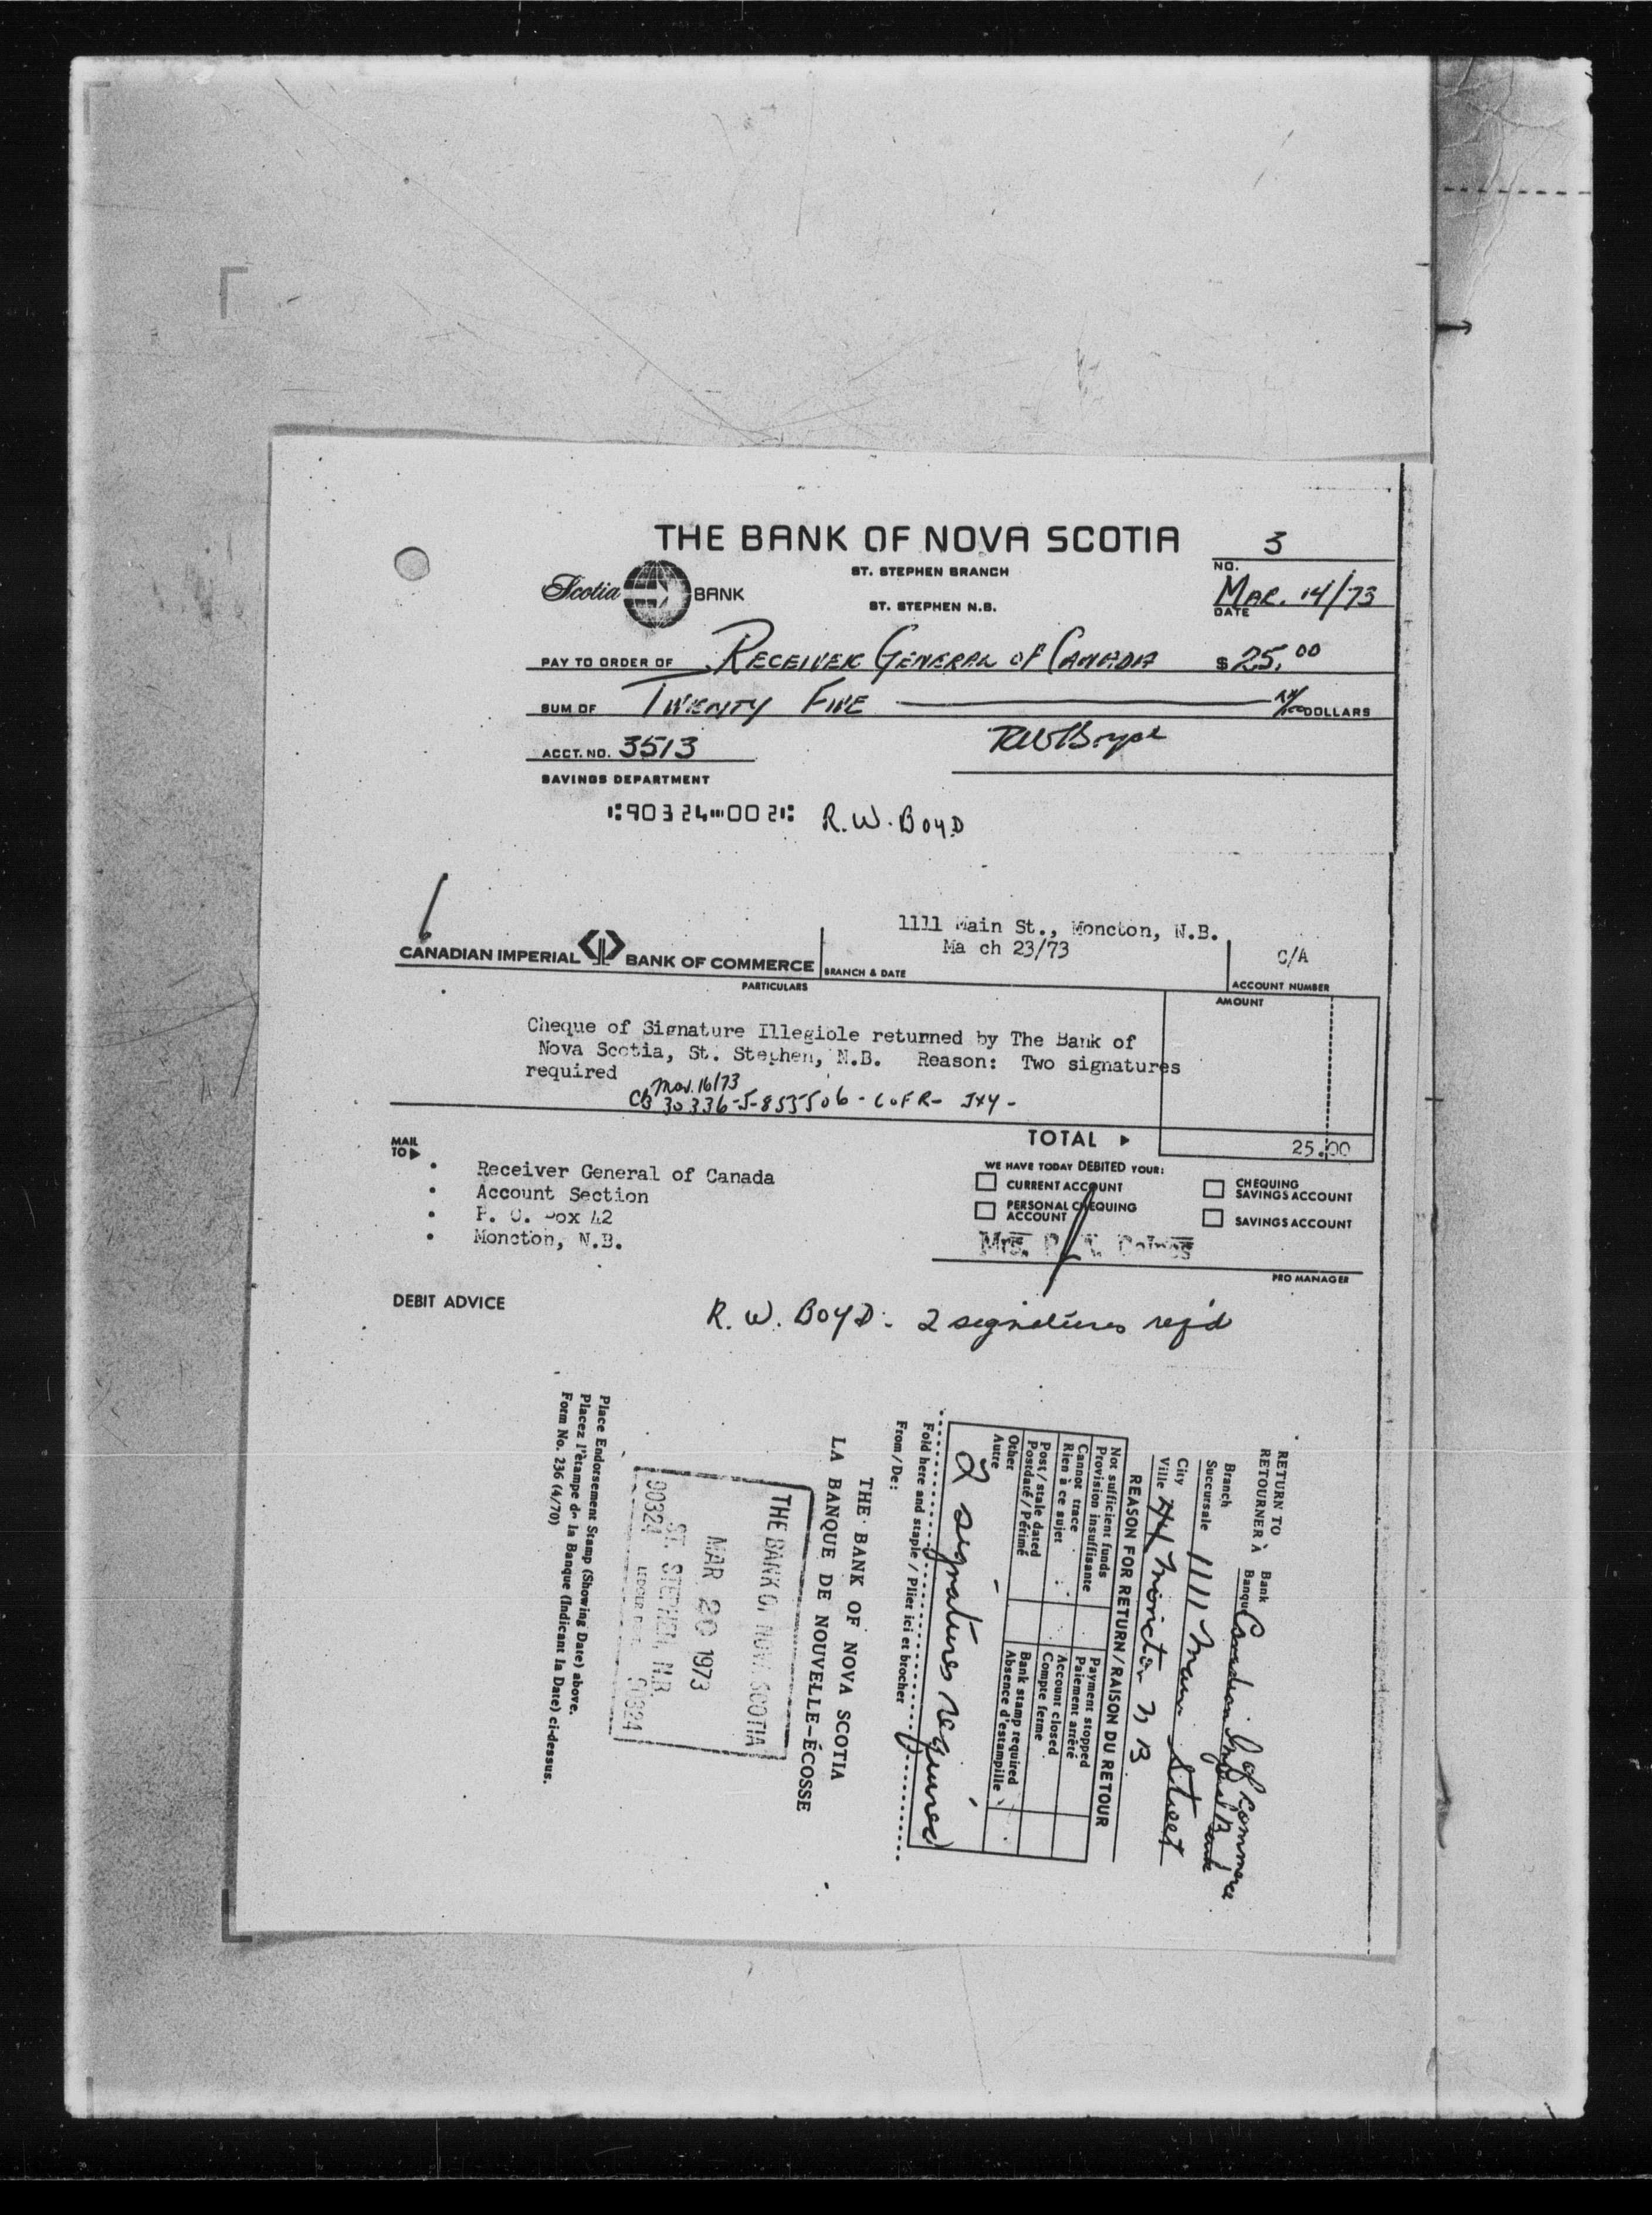 THE BANK OF NOVA SCOTIA
3
NO.
Scotia BANK
ST. STEPHEN BRANCH
ST. STEPHEN N.B.
MAR. 14/73
DATE
PAY TO ORDER OF RECEIVER GENERAL OF CANADA $ 25.00
SUM OF TWENTY FIVE DOLLARS
ACCT. NO. 3513
RWBoyd
SAVINGS DEPARTMENT
⑆90324⑉002⑆ R.W. BOYD
1111 Main St., Moncton, N.B.
Ma ch 23/73
C/A
CANADIAN IMPERIAL BANK OF COMMERCE
BRANCH & DATE
ACCOUNT NUMBER
PARTICULARS
AMOUNT
Cheque of Signature Illegible returned by The Bank of
Nova Scotia, St. Stephen, N.B. Reason: Two signatures
required
Mar. 16/73
CB 30336-J-855506 - C of R-
TOTAL
25.00
MAIL
TO
Receiver General of Canada
Account Section
P. O. Box 42
Moncton, N.B.
WE HAVE TODAY DEBITED YOUR:
CURRENT ACCOUNT
PERSONAL CHEQUING
ACCOUNT
CHEQUING
SAVINGS ACCOUNT
SAVINGS ACCOUNT
Mrs.
PRO MANAGER
DEBIT ADVICE
R. W. BOYD: 2 signatures req'd
RETURN TO
RETOURNER À
Bank
Banque Canadian Imperial Bank
of Commerce
Branch
Succursale 1111 Main Street
City
Ville Moncton N B.
REASON FOR RETURN/RAISON DU RETOUR
Not sufficient funds
Provision insuffisante
Payment stopped
Paiement arrêté
Cannot trace
Rien à ce sujet
Account closed
Compte fermé
Post/stale dated
Postdaté/Périmé
Bank stamp required
Absence d'estampille
Other
Autre
2 signatures required
Fold here and staple / Plier ici et brocher
From/De:
THE BANK OF NOVA SCOTIA
LA BANQUE DE NOUVELLE-ÉCOSSE
THE BANK OF NOVA SCOTIA
MAR 20 1973
ST. STEPHEN, N.B.
90324
90324
Place Endorsement Stamp (Showing Date) above.
Placez l'étampe de la Banque (Indicant la Date) ci-dessus.
Form No. 236 (4/70)